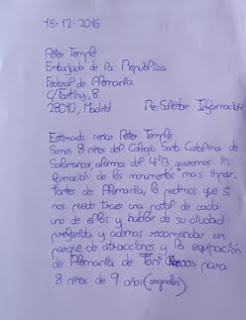 15-12-2016
Peter Temple
Embajada de la República
Federal de Alemania
C/Fortuny, 8
28010, Madrid
Re: Solicitar Información
Estimado señor Peter Temple
Somos 8 niños del Colegio Santa Catalina de
Salamanca, alumnos del 4ºB queremos in
formación de los monumentos mas impor
tantes de Alemania, le pedimos que si
nos puede traer una postal de cada
uno de ellos y hablar de su ciudad
preferida y ademas recomendar un
parque de atracciones y la equipación
de Alemania de Toni Kroos para
8 niños de 9 años (originales)